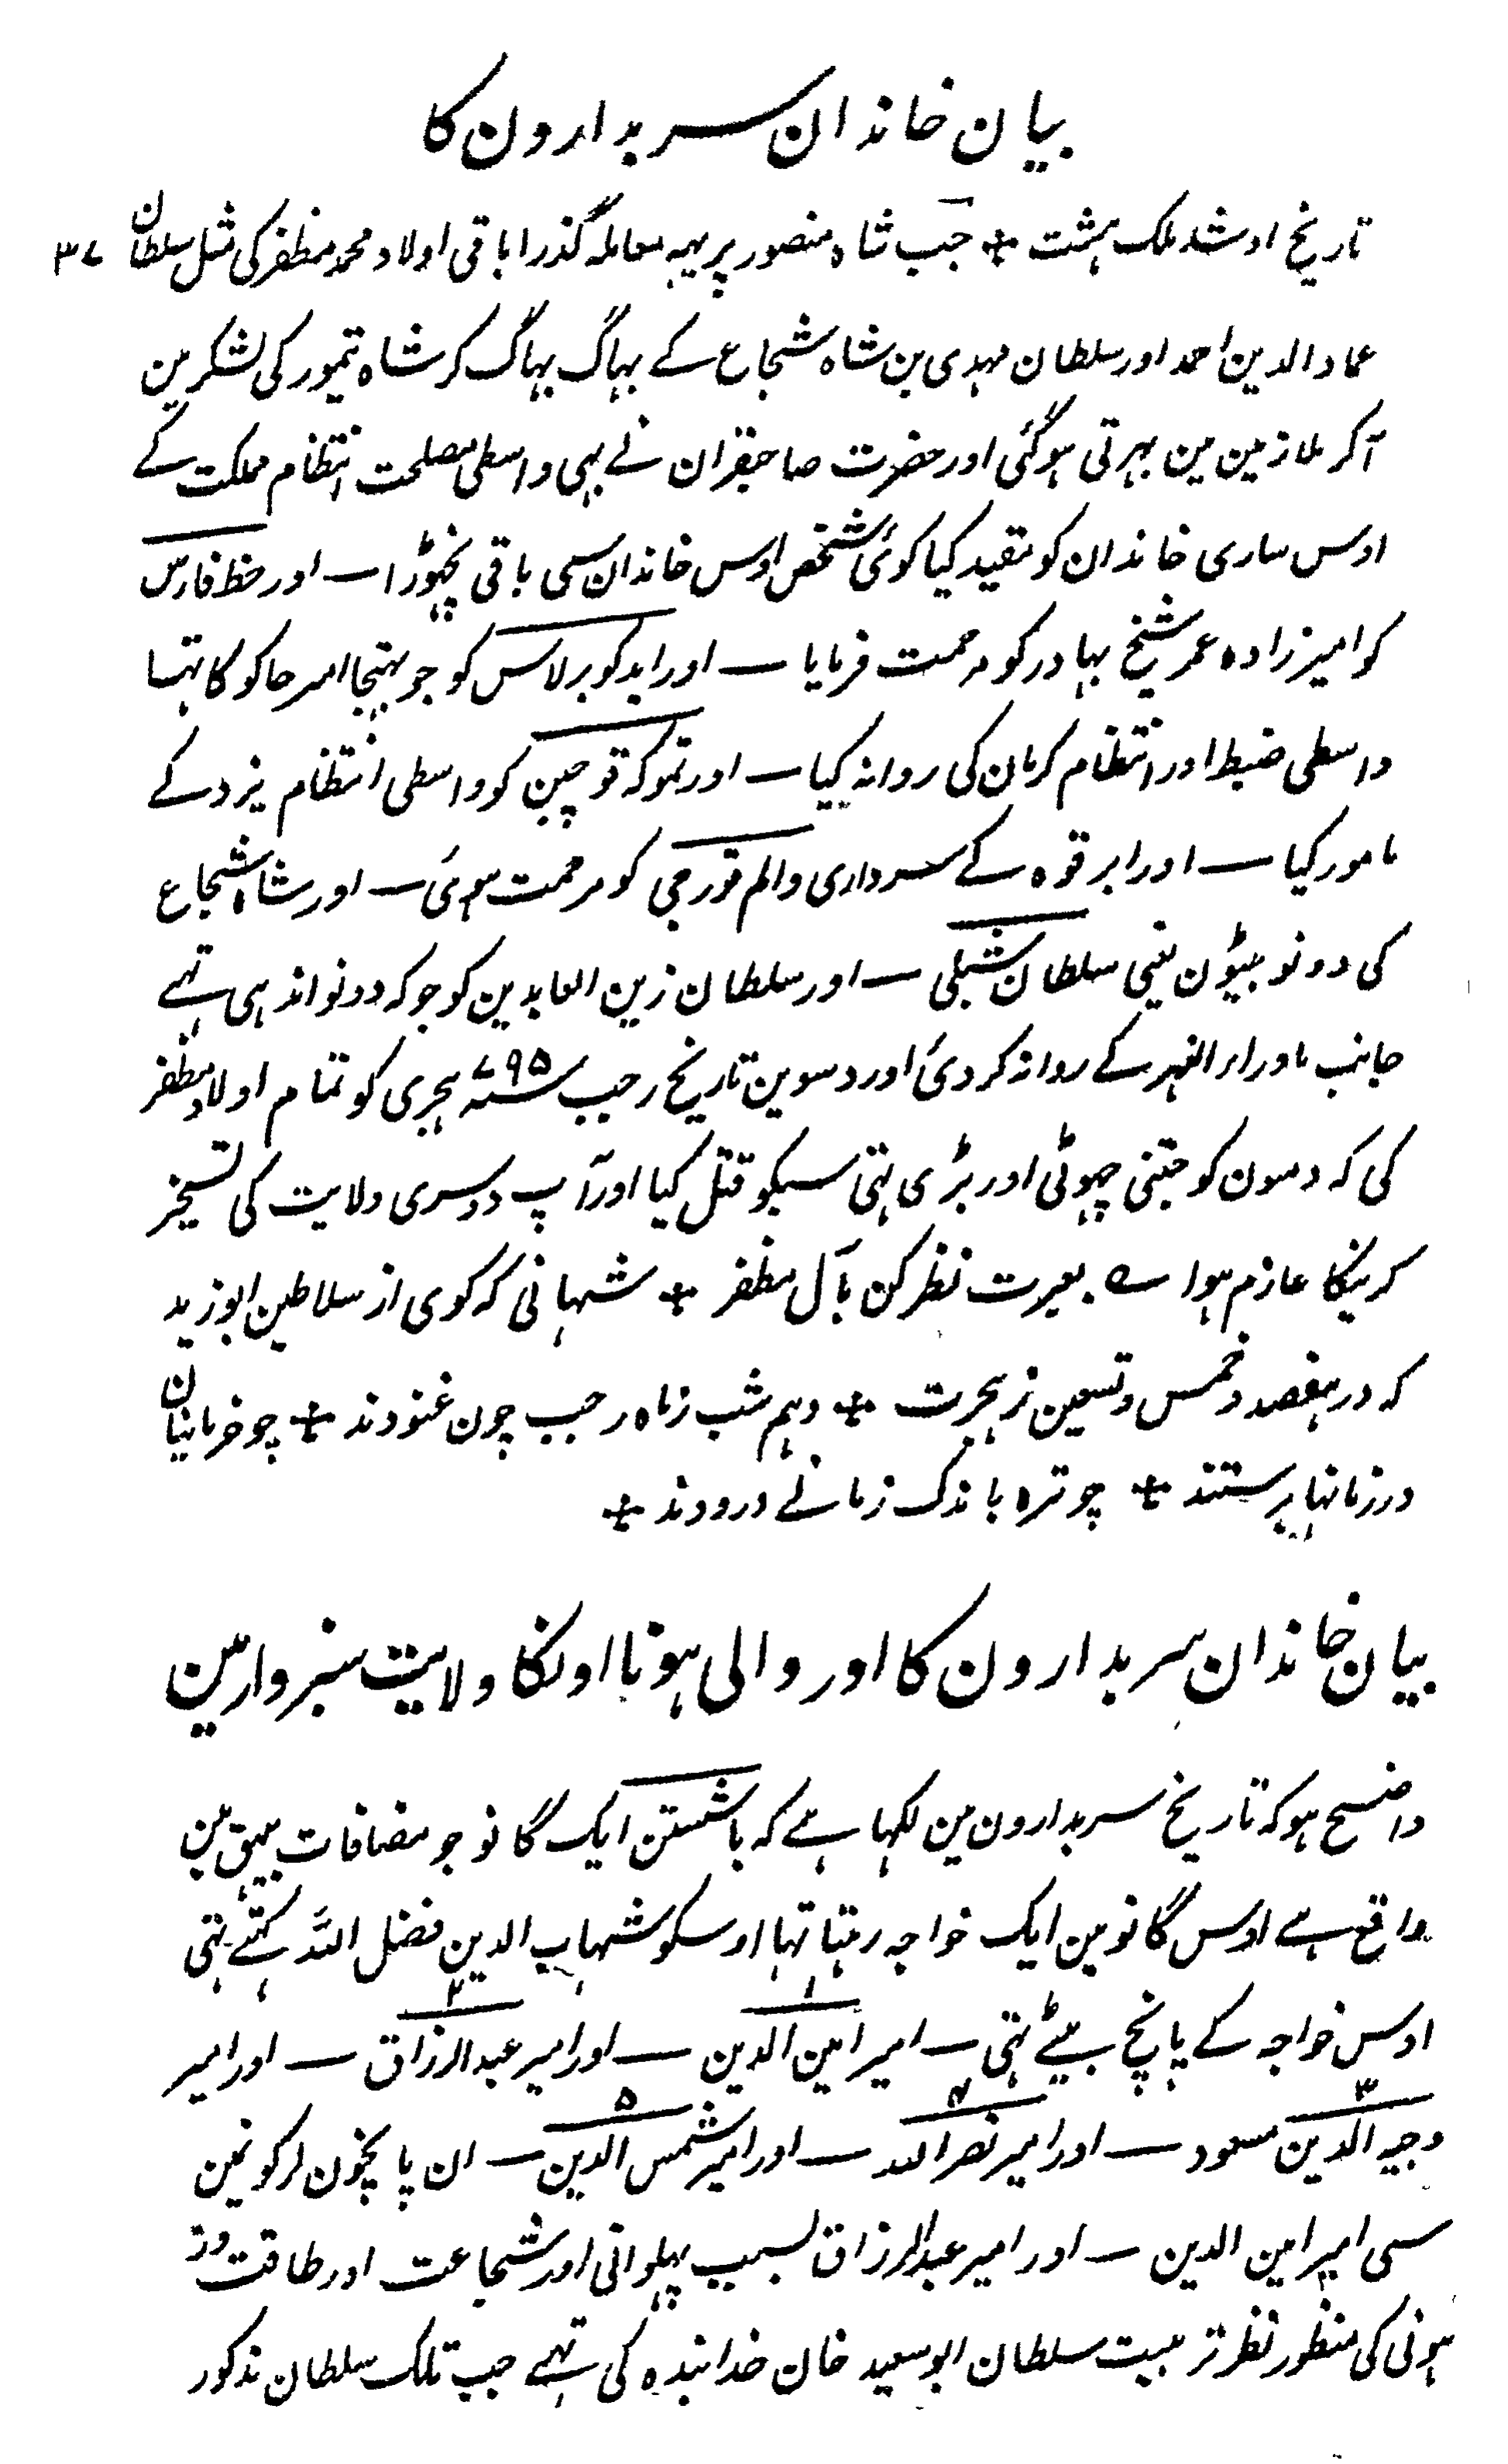 بیان خاندان سربدارون کا
تاریخ او شد ملک ہشت ÷ جب شاہ منصور پر یہہ معاملہ گذرا باقی اولاد محمد مظفر کی مثل سلطان ۳۷
عماد الدین احمد اور سلطان مہدی بن شاہ شجاع کے بہاگ بہاگ کر شاہ تیمور کی لشکر مین
آکر ملازمین مین بہرتی ہوگئی اور حضرت صاحبقران نے بہی واسطی مصلحت انتظام مملکت کے
اوس ساری خاندان کو مقید کیا کوئی شخص اوس خاندان سی باقی نچہوڑا — اور خط فارس
کو امیر زادہ عمر شیخ بہادر کو مرحمت فرمایا — اور ایدکو برلاس کو جو بہتیجا امیر حاکو کا تہا
واسطی ضبط اور انتظام کرمان کی روانہ کیا — اور تموکہ قوچین کو واسطی انتظام یزد کے
مامور کیا — اور ابرقوہ کے سرداری والم قورجی کو مرحمت ہوئی — اور شاہ شجاع
کی دونو بیٹون یعنی سلطان شبلی — اور سلطان زین العابدین کو جو کہ دونو اندہی تہے
جانب ماوراء النہر کے روانہ کر دئ اور دسوین تاریخ رجب سنہ ۷۹۵ ہجری کو تمام اولاد مظفر
کی کہ دسون کو جتنی چہوٹی اور بڑی تہی سبکو قتل کیا اور آپ دوسری ولایت کی تسخیر
کرنیکا عازم ہوا ؎ بعبرت نظر کن بآل مظفر ÷ شہانی کہ گوی از سلاطین ربودند
کہ در ہفصد و خمس و تسعین ز ہجرت ÷ دہم شب ز ماہ رجب چون غنودند ÷ چو خرمانیان
در زمانہا برستند ÷ چو ترہ باندک زمانے درودند ÷
بیان خاندان سربدارون کا اور والی ہونا اونکا ولایت سبزوار مین
واضح ہو کہ تاریخ سربدارون مین لکہا ہے کہ باشتین ایک گانو جو مضافات بیہق مین
واقع ہے اوس گانو مین ایک خواجہ رہتا تہا اوسکو شہاب الدین فضل اللہ کہتے تہی
اوس خواجہ کے پانچ بیٹے تہی — امیر امین الدین ۱ — اور امیر عبدالرزاق ۲ — اور امیر
وجیہ الدین مسعود ۳ — اور امیر نصر اللہ ۴ — اور امیر شمس الدین ۵ — ان پانچون لڑکونمین
سی امیر امین الدین — اور امیر عبدالرزاق بسبب پہلوانی اور شجاعت اور طاقت ور
ہونی کی منظور نظر تربیت سلطان ابو سعید خان خدابندہ کی تہے جب تلک سلطان مذکور